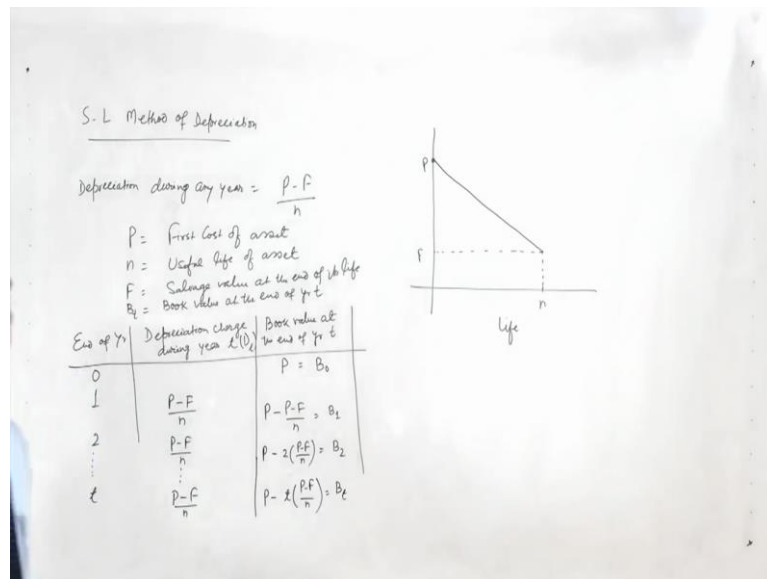 S.L Method of Depreciation
Depreciation during any year = P-F/n
P = First Cost of asset
n = Useful life of asset
F = Salvage value at the end of its life
Bt = Book value at the end of yr t
End of Yr | Depreciation charge during year t (Dt) | Book value at the end of yr t
0 | P = B0
1 | P-F/n | P - P-F/n = B1
2 | P-F/n | P - 2(P-F/n) = B2
t | P-F/n | P - t(P-F/n) = Bt
P
F
n
life